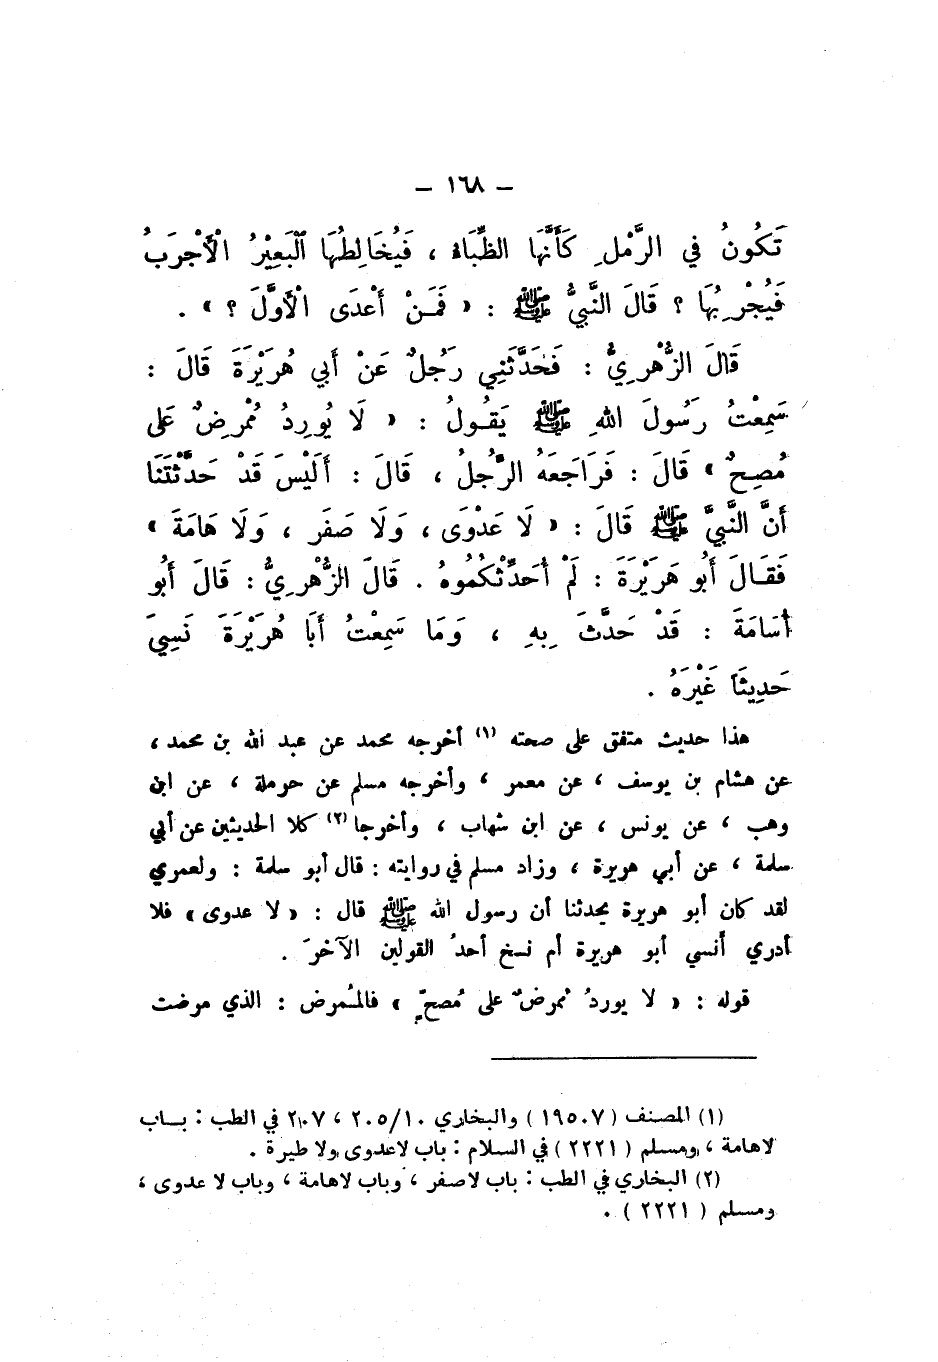 – ١٦٨ –
تَكُونُ في الرَّمْلِ كَأَنَّهَا الظِّبَاءُ ، فَيُخَالِطُهَا البَعِيْرُ الْأَجْرَبُ
فَيُجْرِبُهَا ؟ قَالَ النَّبيُّ ﷺ : « فَمَـنْ أَعْدَى الْأَوَّلَ ؟ » .
قَالَ الزُّهْرِيُّ : فَحَدَّثَنِي رَجُلٌ عَنْ أَبي هُرَيْرَةَ قَالَ :
سَمِعْتُ رَسُولَ اللهِ ﷺ يَقُـولُ : « لَا يُورِدُ مُمْرِضٌ عَلى
مُصِحٌ » قَالَ : فَرَاجَعَهُ الرَّجُلُ ، قَالَ : أَلَيْسَ قَدْ حَدَّثْتَنَا
أَنَّ النَّبيَّ ﷺ قَالَ : « لَا عَدْوَى ، وَلَا صَفَر ، وَلَا هَامَةَ »
فَقَـالَ أَبُو هَرَيْرَةَ : لَمْ أُحَدِّثْكُمُوهُ . قَالَ الزُّهْرِيُّ : قَالَ أَبُو
أُسَامَةَ : قَدْ حَدَّثَ بِهِ ، وَمَا سَمِعْتُ أَبَا هُرَيْرَةَ نَسِيَ
حَدِيثَاً غَيْرَهُ .
هذا حديث متفق على صحته (١) أخرجه محمد عن عبد الله بن محمد ،
عن هشام بن يوسف ، عن معمر ، وأخرجه مسلم عن حرملة ، عن ابن
وهب ، عن يونس ، عن ابن شهاب ، وأخرجا (٢) كلا الحديثين عن أبي
سلمة ، عن أبي هريرة ، وزاد مسلم في روايته : قال أبو سلمة : ولعمري
لقد كان أبو هريرة يحدثنا أن رسول الله ﷺ قال : « لا عدوى » فلا
أدري أَنسي أبو هريرة أم نسخ أحدُ القولين الآخرَ .
قوله : « لا يوردُ ممرضٌ على مُصحّ » فالمُمرض : الذي مرضت
(١) المصنف (١٩٥٠٧) والبخاري ٢٠٥/١٠ ، ٢٠٧ في الطب : بــاب
لاهامة ، ومسلم (٢٢٢١) في السلام : باب لاعدوى ولا طيرة .
(٢) البخاري في الطب : باب لاصفر ، وباب لاهامة ، وباب لا عدوى ،
ومسلم (٢٢٢١) .